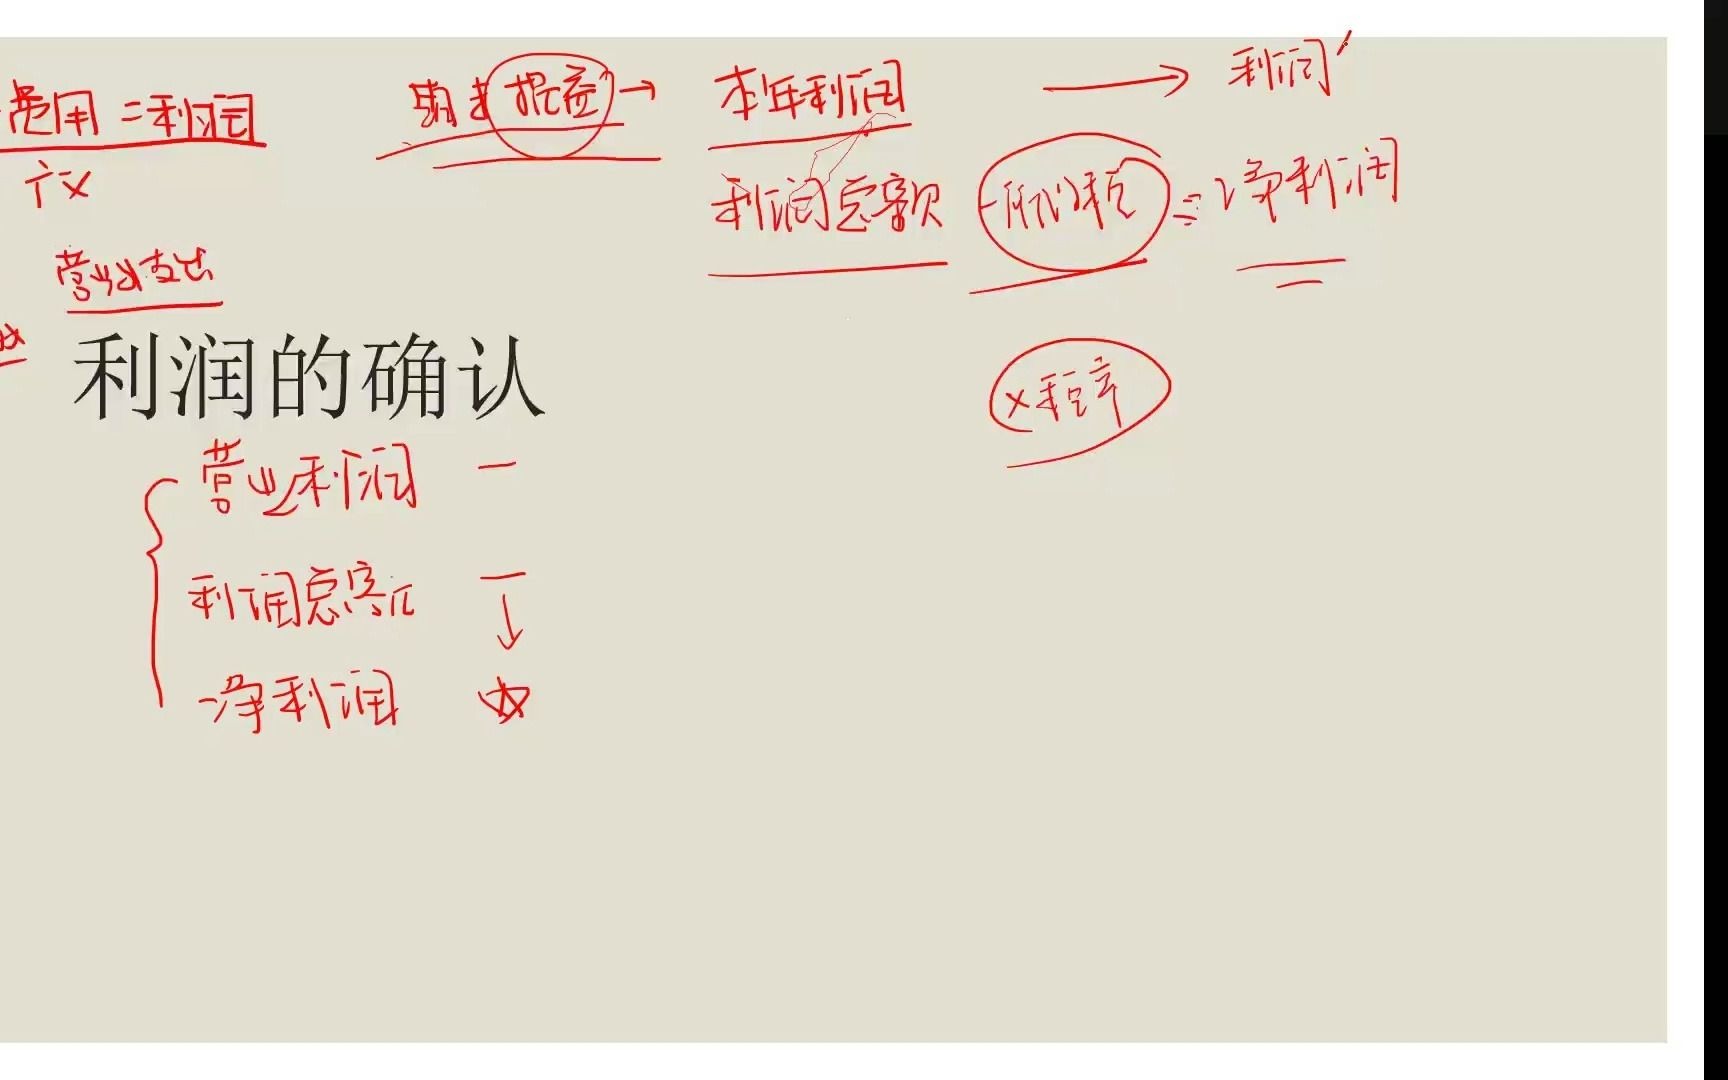 费用 = 利润
广义
期末损益 → 本年利润 → 利润
利润总额 - 所得税 = 净利润
营业外支出
利润的确认
× 税率
营业利润 一
利润总额 一
净利润 ☆